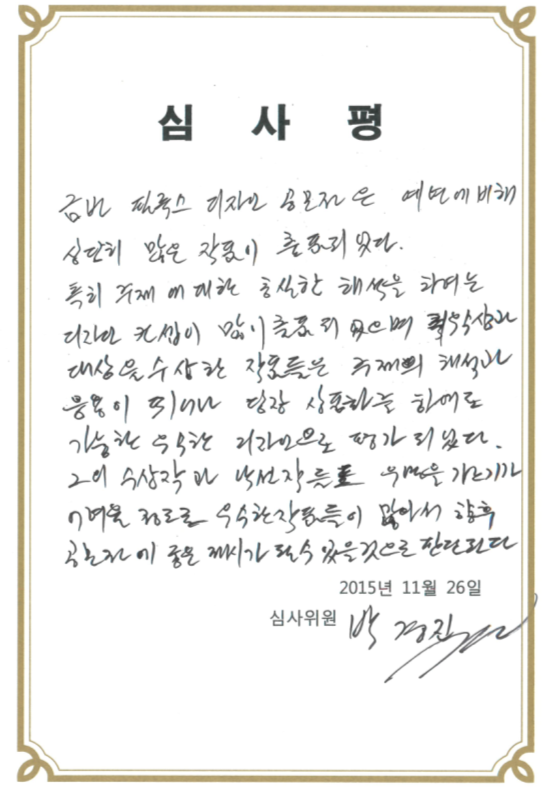 심 사 평
금번 필룩스 디자인 공모전은 예년에 비해
상당히 많은 작품이 출품되었다.
특히 주제에 대한 충실한 해석을 하려는
디자인 컨셉이 많이 출품되었으며 최우수상과
대상을 수상한 작품들은 주제의 해석과
응용이 뛰어나 당장 상품화를 하여도
가능한 우수한 디자인으로 평가되었다.
그외 수상작과 낙선작들도 우열을 가르기가
어려울 정도로 우수한 작품들이 많아서 향후
공모전에 좋은 제시가 될 수 있을것으로 판단된다
2015년 11월 26일
심사위원 박경진